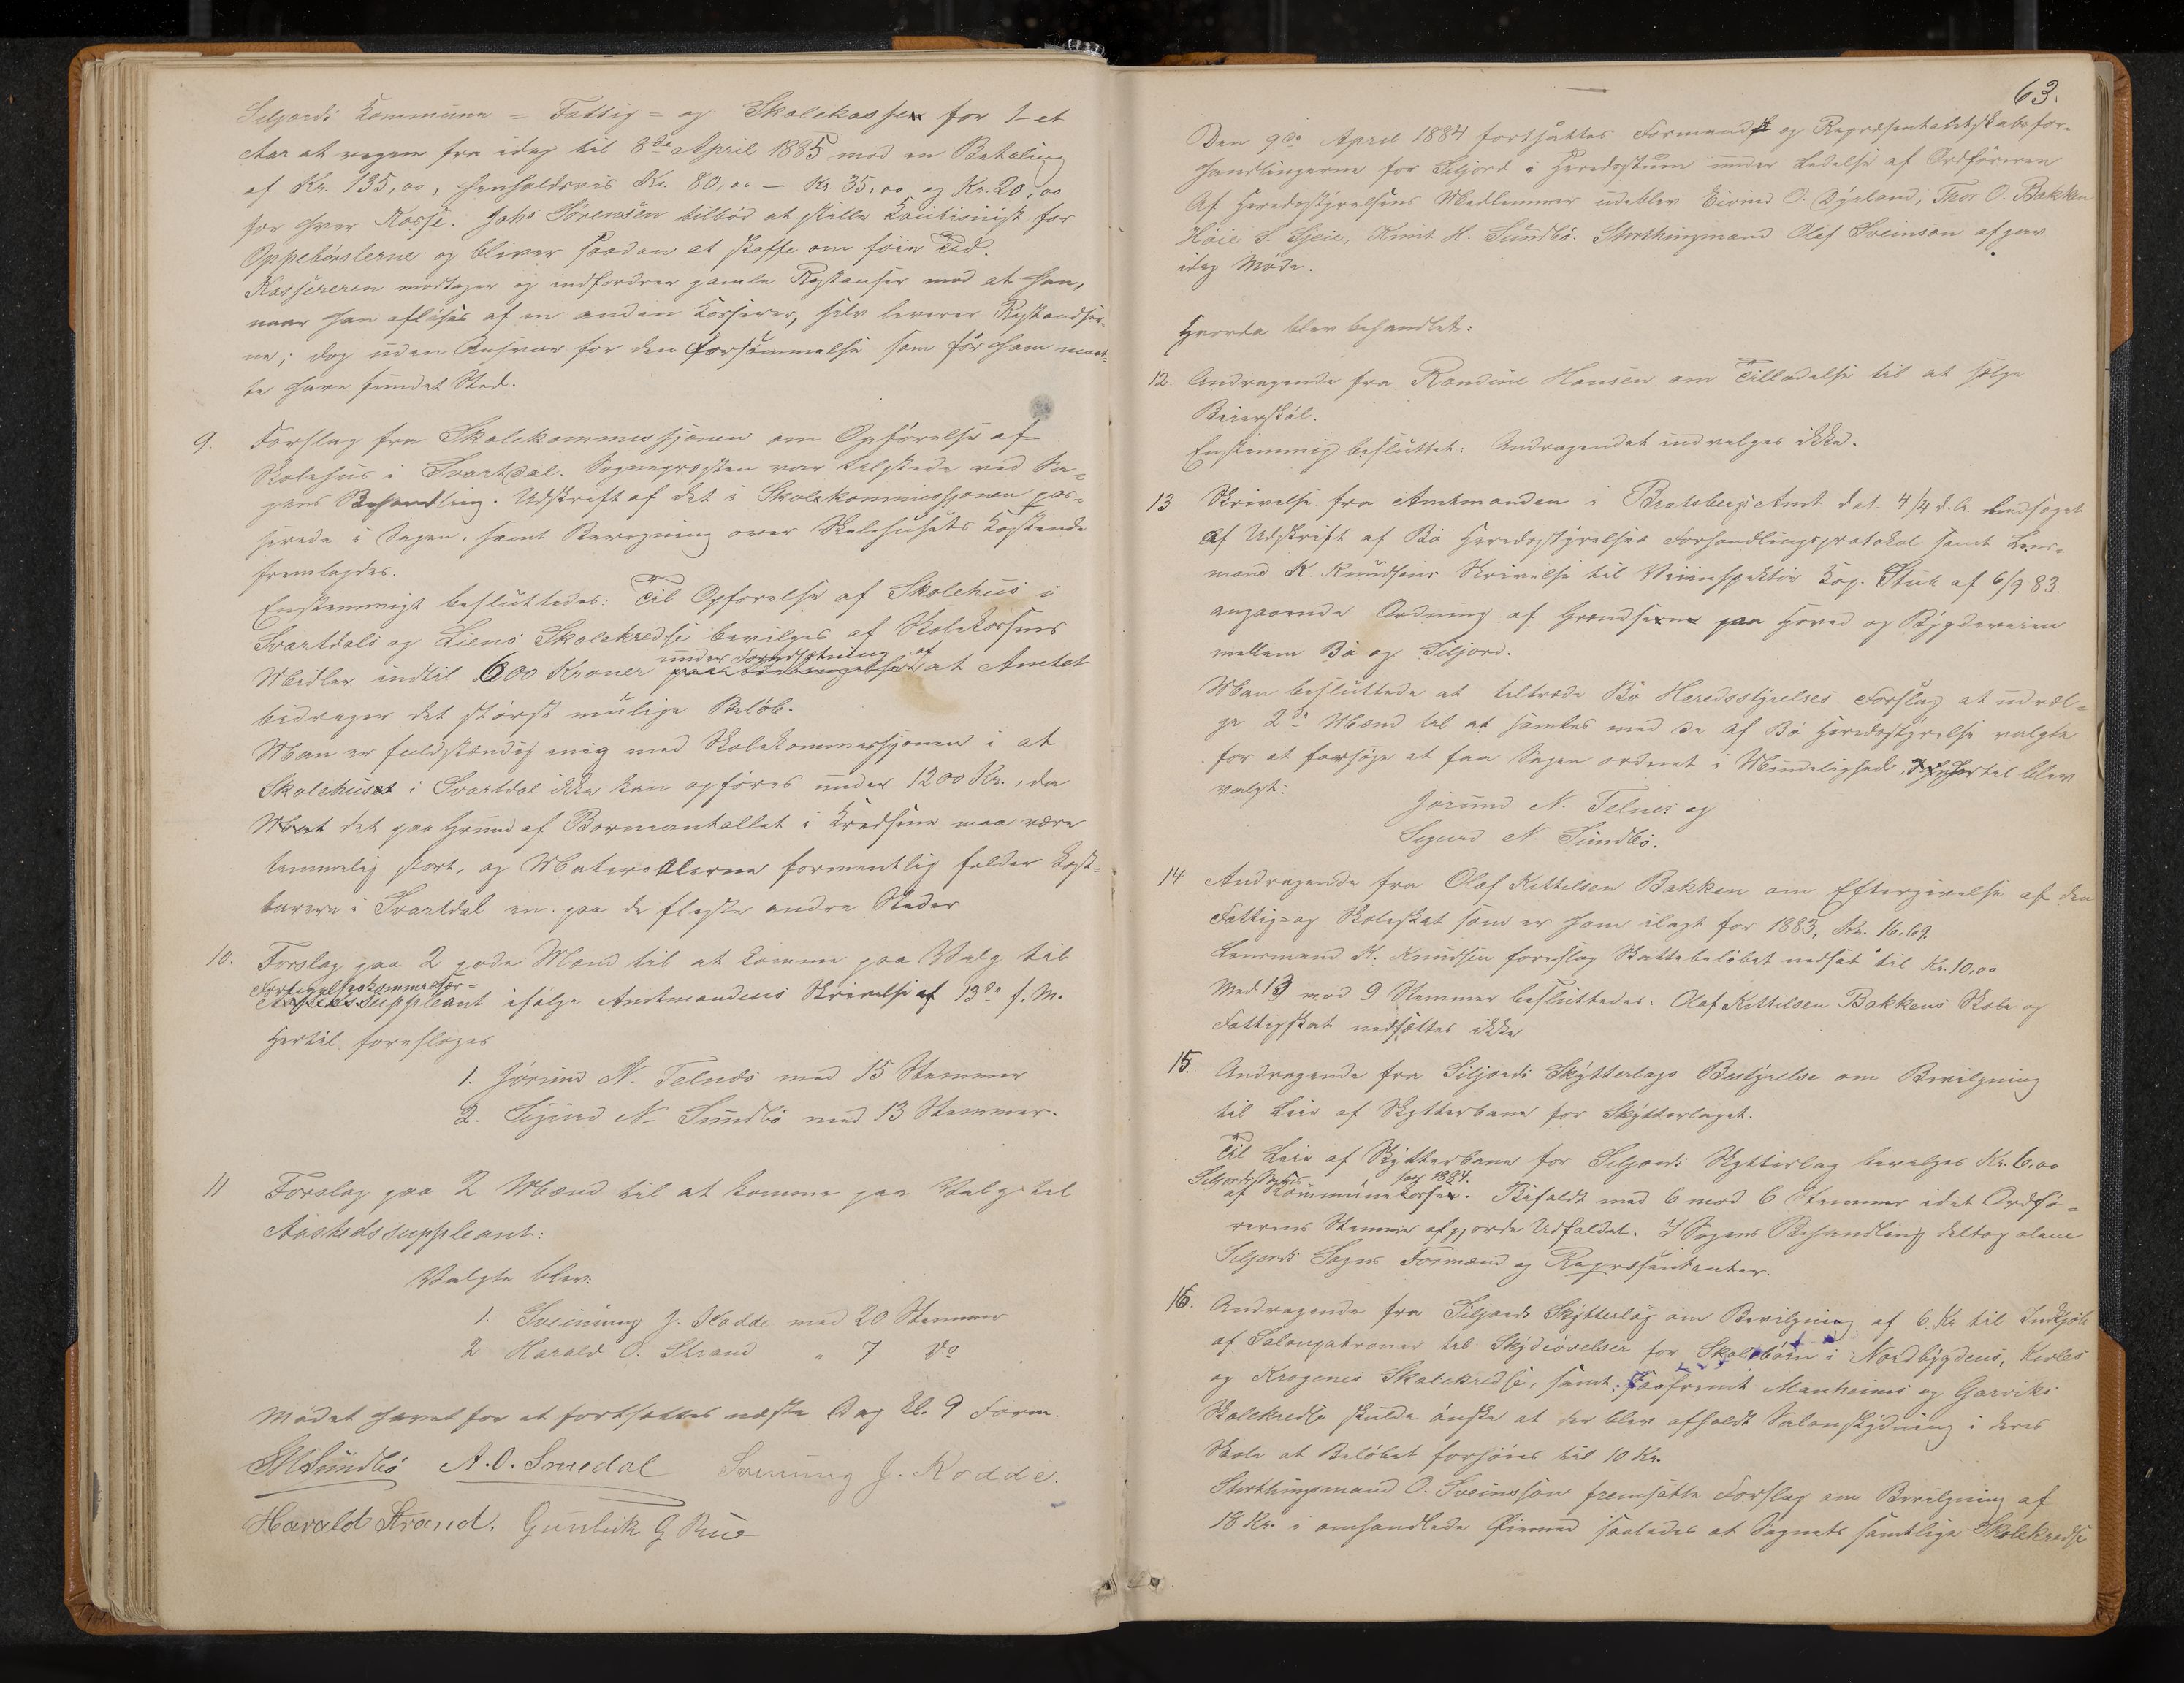 Seljords Kommune = Fattig = og Skolekassen for 1 et
Aar at regne fra idag til 8de April 1885 mod en Betaling
af Kr. 135,00, henholdsvis Kr. 80,00 – Kr. 35,00 og Kr. 20,00
for hver Kasse. Johs Sørensen tilbød at stille Kautionist for
Oppebørslerne og bliver saadan at skaffe om føie Tid.
Kassereren modtager og indfordrer gamle Restanser mod at han,
naar han afløses af en anden Kasserer, selv leverer Restandser-
ne; dog uden Ansvar for den Forsømmelse som før ham maat-
te have fundet Sted.
9. Forslag fra Skolekommissjonen om Opførelse af
Skolehus i Svartdal. Sognepresten var tilstede ved Sa-
gens Behandling. Udskrift af det i Skolekommissjonen pas-
serede i Sagen, samt Beregning over Skolehusets Kostende
fremlagdes.
Enstemmigt besluttedes: Til Opførelse af Skolehus i
Svartdals og Liens Skolekredse bevilges af Skolekassens
under Forudsætning af
Midler indtil 600 Kroner at Amtet
bidrager det størst mulige Beløb.
Man er fuldstændig enig med Skolekommissjonen i at
Skolehuset i Svartdal ikke kan opføres under 1200 Kr., da
det paa Grund af Barneantallet i Kredsene maa være
temmelig stort, og Materialerne formentlig falder kost-
barere i Svartdal en paa de fleste andre Steder
10. Forslag paa 2 gode Mænd til at komme paa Valg til
suppleant ifølge Amtmandens Skrivelse af 13de f. M.
Hertil foresloges
1. Jørund N. Telnæs med 15 Stemmer
2. Sigurd N. Sundbø med 13 Stemmer.
11 Forslag paa 2 Mænd til at komme paa Valg til
Aastedssuppleant:
Valgte blev:
1. Sveinung J. Kodde med 20 Stemmer
2 Harald O. Strand " 7 do
Mødet hævet for at fortsættes næste Dag Kl. 9 Form.
Sundbø A. O. Smedal Sveinung J. Kodde.
Harald Strand. Gunleik G Rue
63.
Den 9de April 1884 fortsattes Formands og Repræsentantskabsfor-
handlingerne for Seljord i Heredsstuen under Ledelse af Ordføreren
Af Heredsstyrelsens Medlemmer udeblev Eivind O. Dyrland, Thor O. Bakken
Høie S. Gjeie, Knut H. Sundbø. Storthingsmand Olaf Sveinson afgav
idag Møde.
Hvorda blev behandlet:
12. Andragende fra Randine Hansen om Tilladelse til at sælge
Baierskøl.
Enstemmig besluttet: Andragendet indvilges ikke.
13 Skrivelse fra Amtmanden i Bratsbergs Amt dat. 4/4 d. A. ledsaget
af Udskrift af Bø Heredsstyrelses Forhandlingsprotokol samt Lens-
mand K. Knudsens Skrivelse til Veiinspektør Kap. Stub af 6/9 83.
angaaende Ordning af Grændserne paa Hoved og Bygdeveien
mellem Bø og Siljord.
Man besluttede at tiltræde Bø Heredsstyrelses Forslag at udvæl-
ge 2de Mænd til at samles med de af Bø Heredsstyrelse valgte
for at forsøge at faa Sagen ordnet i Mindelighed, hertil blev
valgt:
Jørund N. Telnes og
Sigurd N. Sundbø.
14 Andragende fra Olaf Kittelsen Bakken om Eftergivelse af den
Fattig- og Skoleskat som er ham ilagt for 1883, Kr. 16.69.
Lensmand K. Knudsen foreslog Skattebeløbet nedsat til Kr. 10,00
Med 13 mod 9 Stemmer besluttedes: Olaf Kittilsen Bakkens Skole og
Fattigskat nedsættes ikke
15. Andragende fra Siljords Skytterlags Bestyrelse om Bevilgning
til Leie af Skytterbane for Skytterlaget.
Til Leie af Skytterbane for Seljords Skytterlag bevilges Kr. 6.00
Seljords Sogns for 1884.
af Kommunekassen. Bifaldt med 6 mod 6 Stemmer idet Ordfø-
rerens Stemme afgjorde Udfaldet. I Sagens Behandling deltog alene
Seljords Sogns Formænd og Repræsentanter.
16. Andragende fra Siljords Skytterlag om Bevilgning af 6 Kr til Indkjøb
af Salonpatroner til Skydeøvelser for Skolebørn i Nordbygdens, Kivles
og Krogenes Skolekredse, samt, saafremt Manheims og Garviks
Skolekredse skulde ønske at der blev afholdt Salonskydning i deres
Skole at Beløbet forhøies til 10 Kr.
Storthingsmand O. Sveinsson fremsatte Forslag om Bevilgning af
18 Kr. i omhandlede Øiemed saaledes at Sognets samtlige Skolekredse